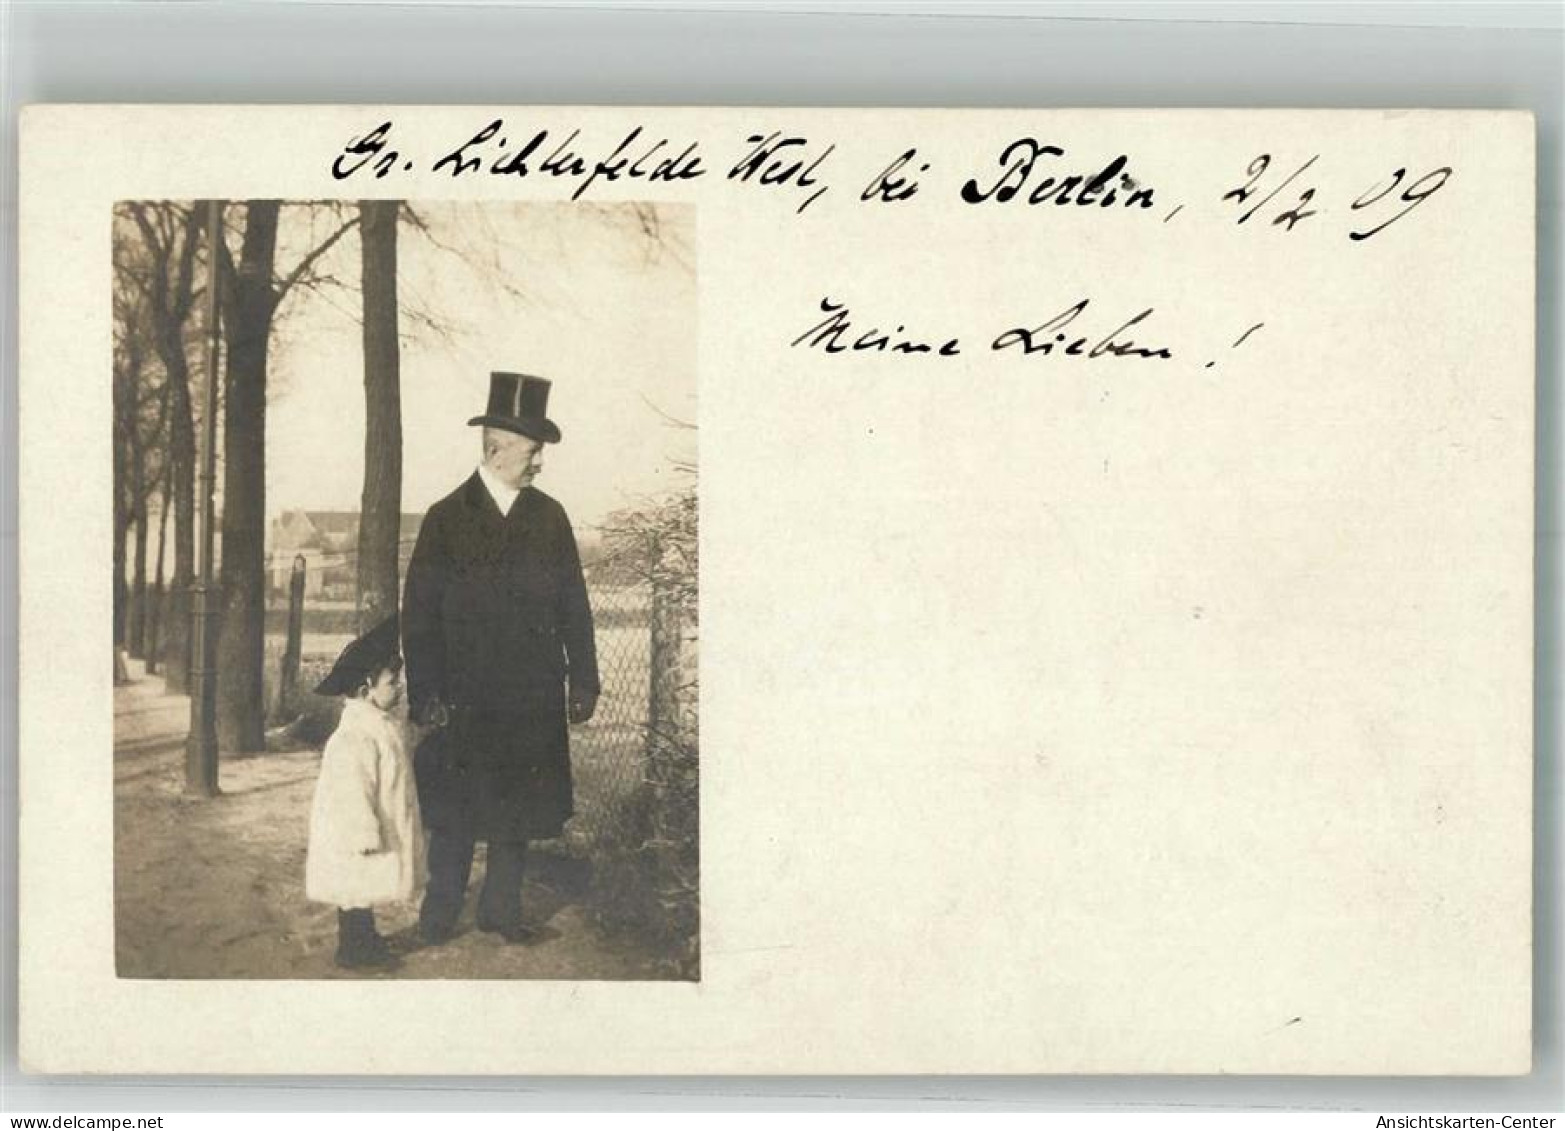 Gr. Lichterfelde West, bei Berlin, 2/2 09
Meine Lieben!
www.delcampe.net
Ansichtskarten-Center